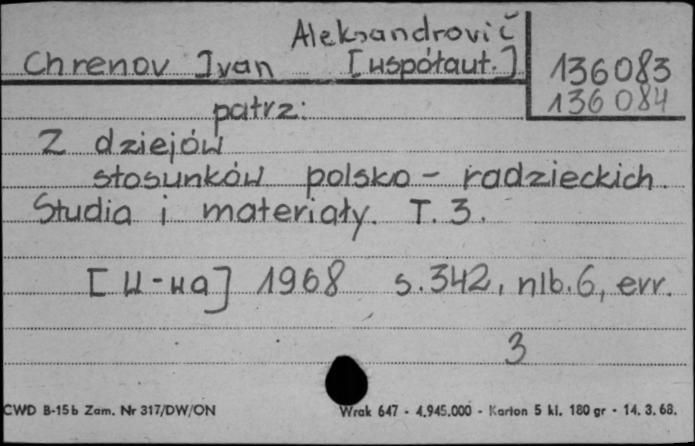 Aleksandrovič
Chrenov Ivan [współaut.] 136083
136084
patrz:
Z dziejów
stosunków polsko - radzieckich.
Studia i materiały. T. 3.
[W-wa] 1968 s. 342, nlb. 6, err.
3
CWD B-15b Zam. Nr 317/DW/ON Wrak 647 - 4.945.000 - Karton 5 kl. 180 gr - 14. 3. 68.